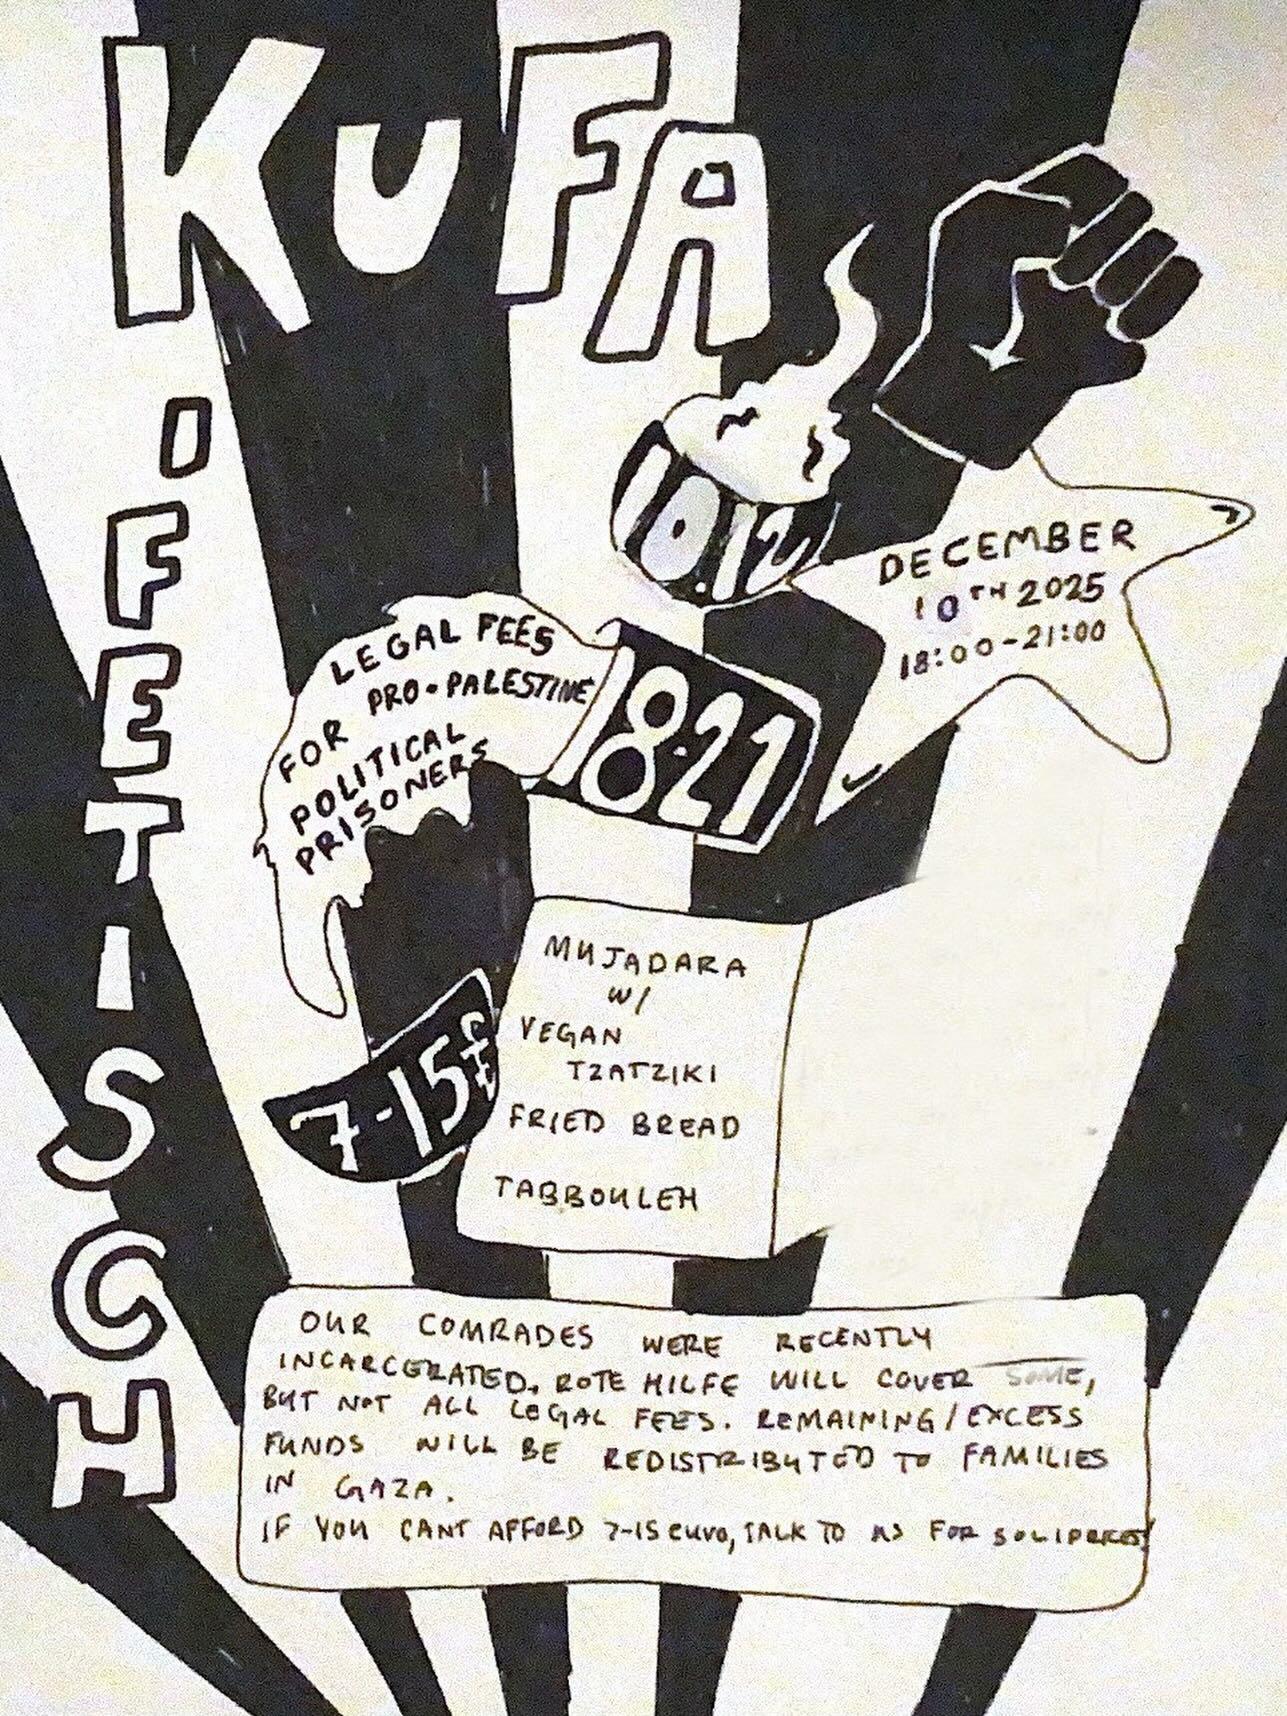 KUFA
OFETISCH
10.12
DECEMBER
10TH 2025
18:00-21:00
LEGAL FEES
FOR PRO-PALESTINE
POLITICAL
PRISONERS
18-21
MUJADARA
W/
VEGAN
TZATZIKI
FRIED BREAD
TABBOULEH
7-15£
OUR COMRADES WERE RECENTLY
INCARCERATED. ROTE HILFE WILL COVER SOME,
BUT NOT ALL LEGAL FEES. REMAINING/EXCESS
FUNDS WILL BE REDISTRIBUTED TO FAMILIES
IN GAZA.
IF YOU CANT AFFORD 7-15 euro, TALK TO US FOR SOLIPRICES!